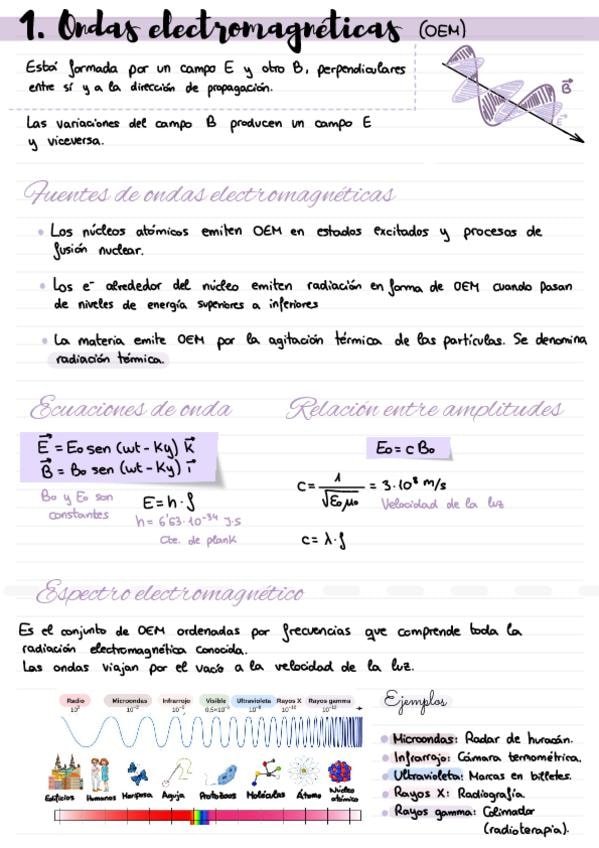 1. Ondas electromagnéticas (OEM)
Está formada por un campo E y otro B, perpendiculares
entre sí y a la dirección de propagación.
B
E
Las variaciones del campo B producen un campo E
y viceversa.
Fuentes de ondas electromagnéticas
• Los núcleos atómicos emiten OEM en estados excitados y procesos de
fusión nuclear.
• Los e⁻ alrededor del núcleo emiten radiación en forma de OEM cuando pasan
de niveles de energía superiores a inferiores
• La materia emite OEM por la agitación térmica de las partículas. Se denomina
radiación térmica.
Ecuaciones de onda
E⃗ = E₀ sen (wt - Ky) k⃗
B⃗ = B₀ sen (wt - Ky) i⃗
B₀ y E₀ son
constantes
E = h · f
h = 6'63 · 10⁻³⁴ J·s
Cte. de plank
Relación entre amplitudes
E₀ = c B₀
c = 1/√ε₀μ₀ = 3·10⁸ m/s
Velocidad de la luz
c = λ · f
Espectro electromagnético
Es el conjunto de OEM ordenadas por frecuencias que comprende toda la
radiación electromagnética conocida.
Las ondas viajan por el vacío a la velocidad de la luz.
Radio Microondas Infrarrojo Visible Ultravioleta Rayos X Rayos gamma
10⁻² 0.5×10⁻⁶ 10⁻⁸ 10⁻¹⁰ 10⁻¹²
Edificios Humanos Mariposa Aguja Protozoos Moléculas Átomo Núcleo
atómico
Ejemplos
• Microondas: Radar de huracán.
• Infrarrojo: Cámara termométrica.
• Ultravioleta: Marcas en billetes.
• Rayos X: Radiografía
• Rayos gamma: Colimador
(radioterapia).